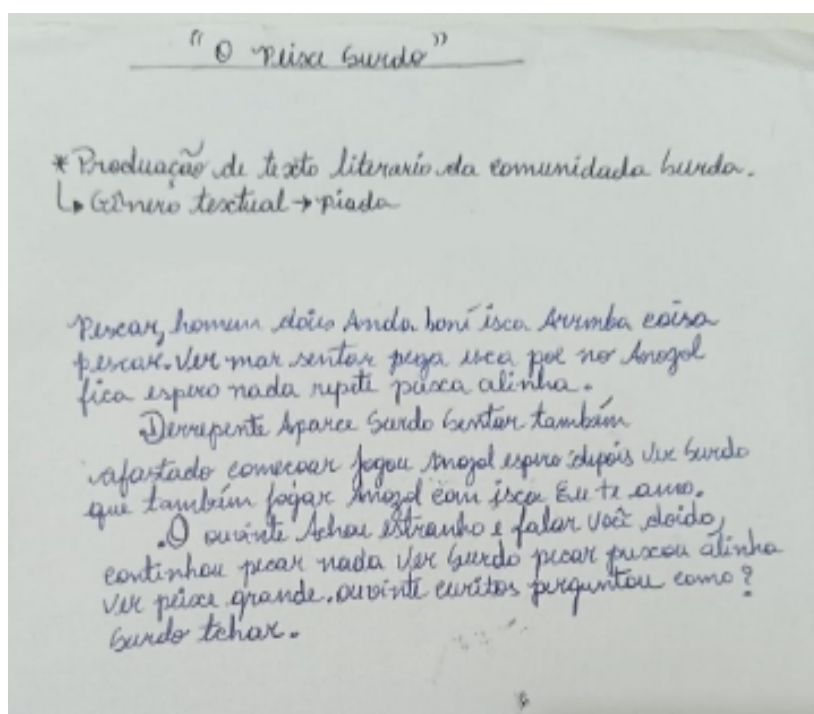 "O Peixe Surdo"
* Produação de texto literario da comunidada Surda.
↳ Gênero textual → piada
Pescar, homem dois Anda. boní isca Arrumba coisa
pescar. Ver mar sentar pega isca poe no Anogol
fica espero nada repite puxa alinha.
Derrepente Aparce Surdo Sentar também
afastado comecoar jogou Anogol espero depois Ver Surdo
que também jogar Anogol com isca Eu te amo.
.O ouvinte Achou estranho e falar você doido,
continhou pecar nada Ver Surdo pecar puxou alinha
ver peixe grande. ouvinte curitos perguntou como?
Surdo tchar.